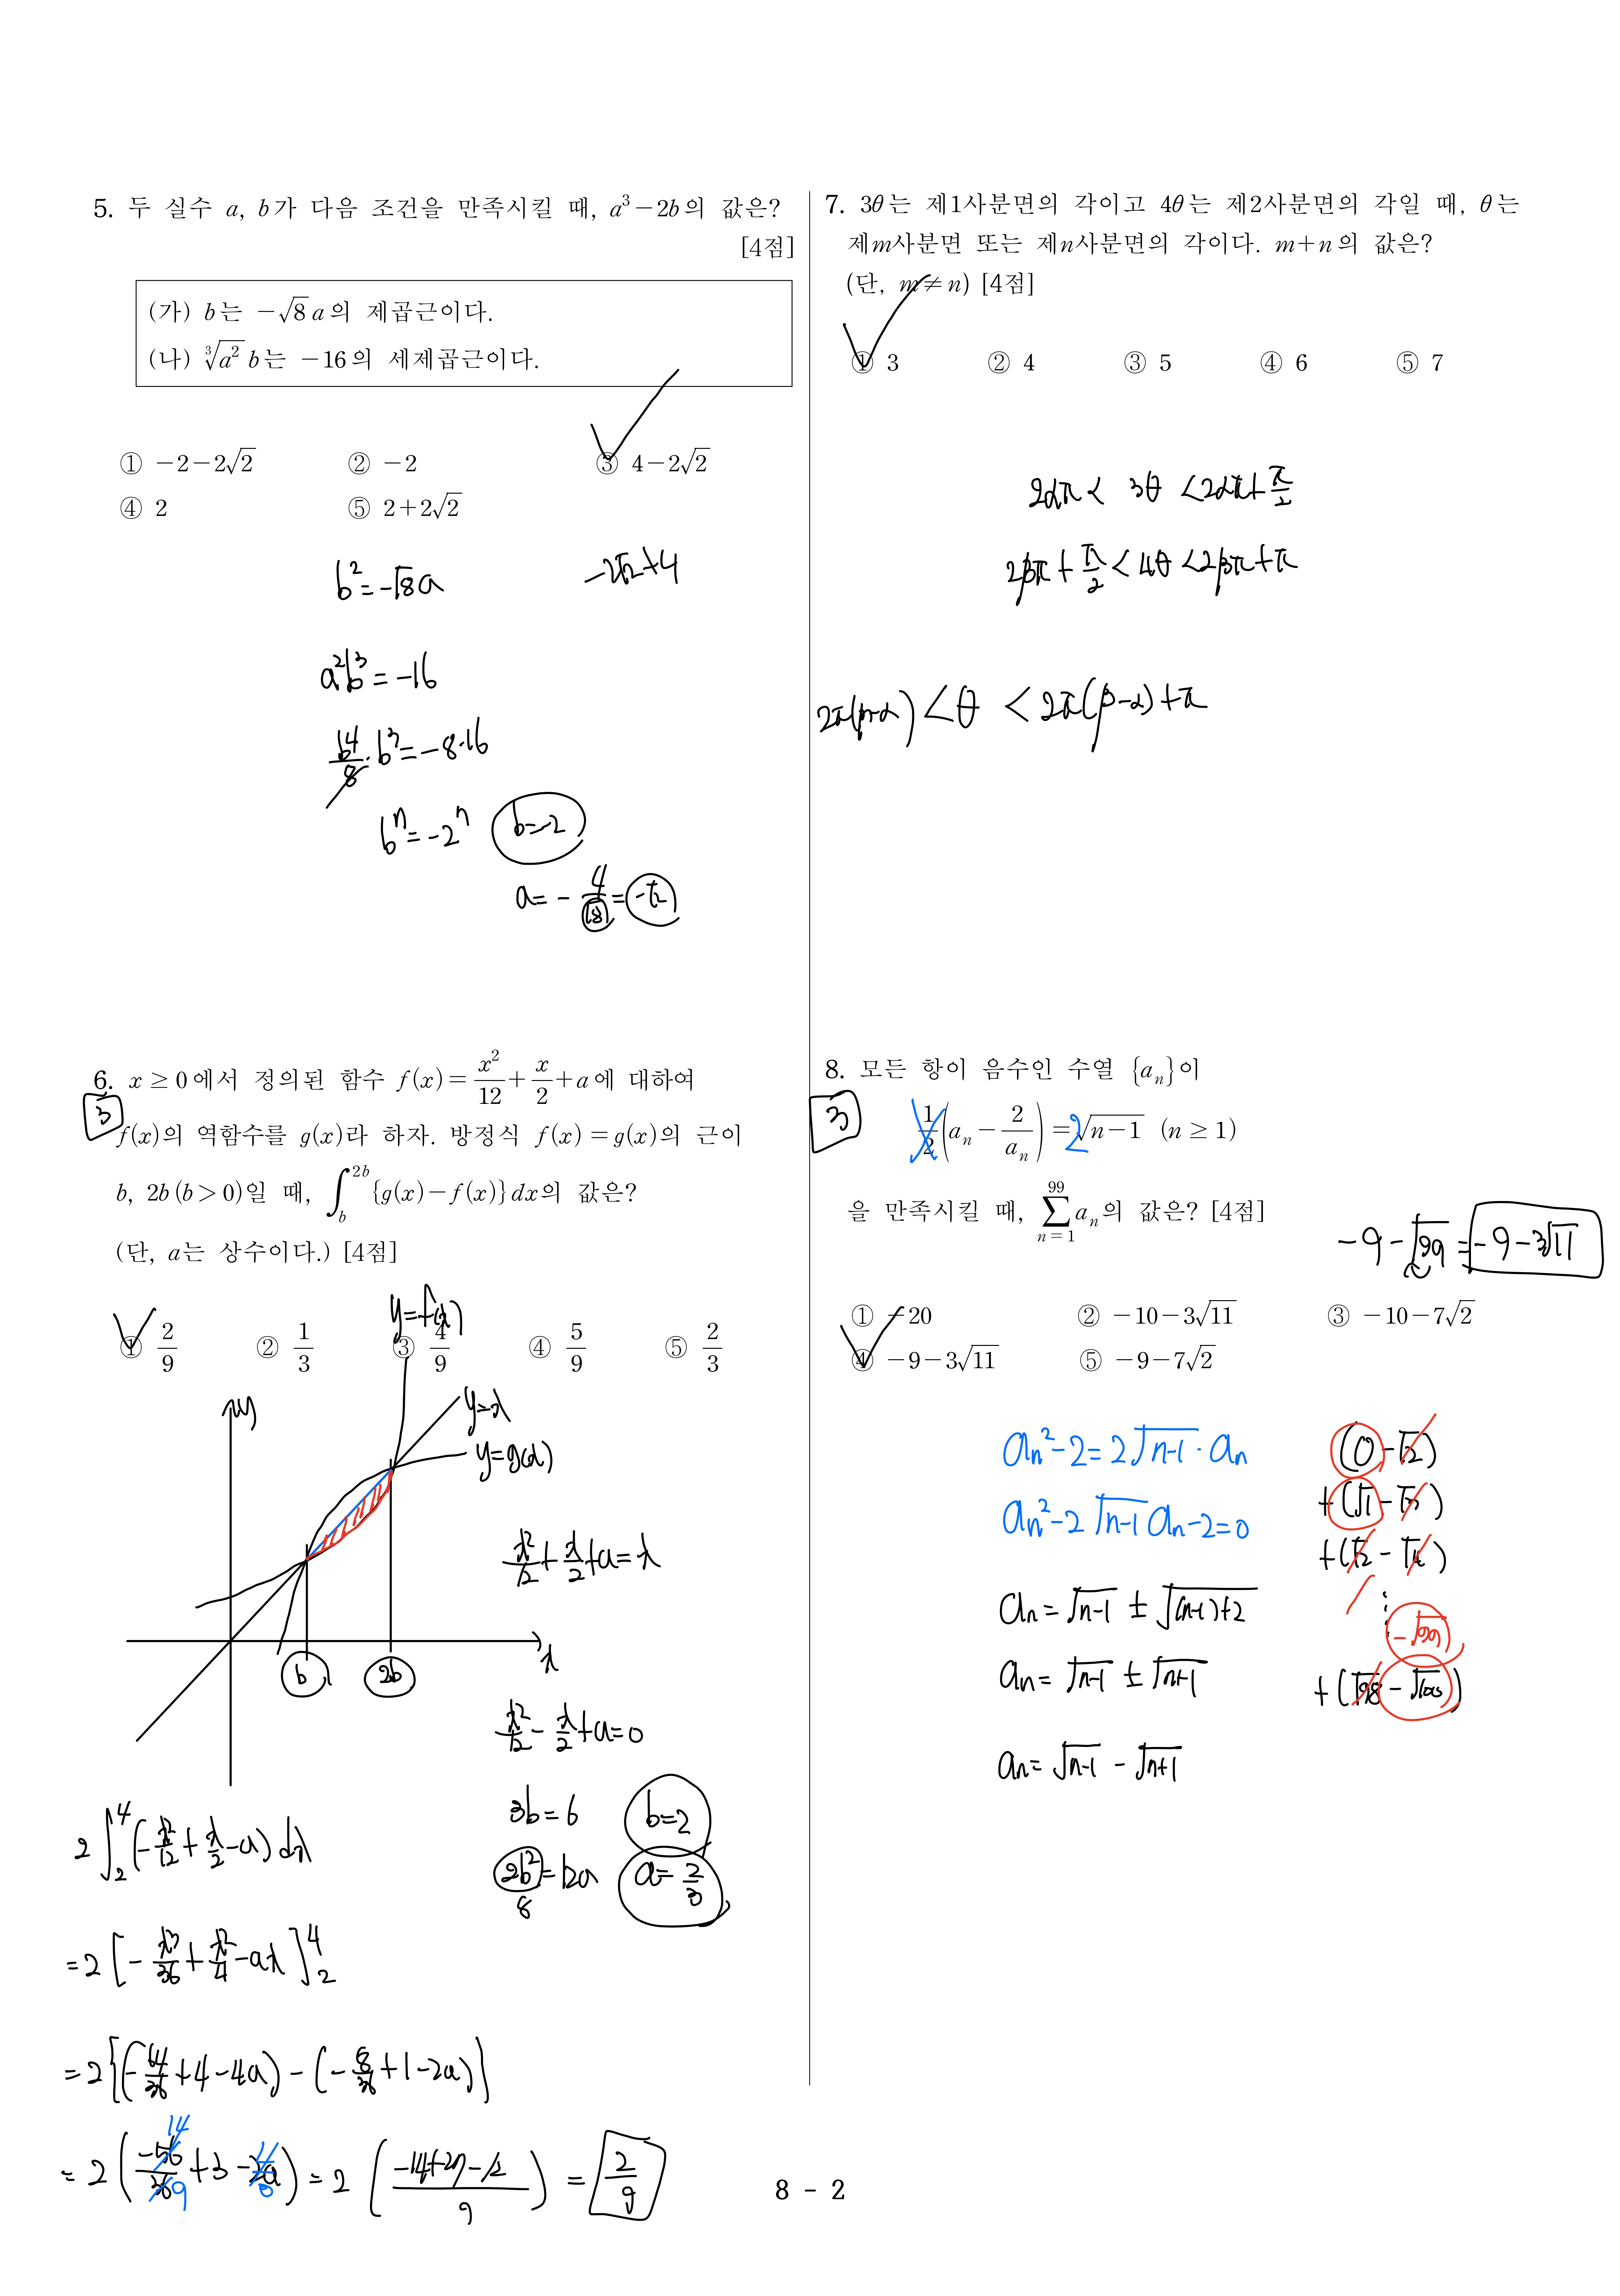 5. 두 실수 a, b가 다음 조건을 만족시킬 때, a³−2b의 값은?
[4점]
(가) b는 −√8 a의 제곱근이다.
(나) ∛(a²) b는 −16의 세제곱근이다.
① −2−2√2 ② −2 ③ 4−2√2
④ 2 ⑤ 2+2√2
b² = −√8 a
−2√2+4
a²b³ = −16
b⁴/8 · b³ = −8·16
bⁿ = −2ⁿ b=−2
a = − 4/√8 = −√2
6. x ≥ 0에서 정의된 함수 f(x) = x²/12 + x/2 + a에 대하여
3
f(x)의 역함수를 g(x)라 하자. 방정식 f(x) = g(x)의 근이
b, 2b (b > 0)일 때, ∫_b^{2b} {g(x)−f(x)}dx의 값은?
(단, a는 상수이다.) [4점]
① 2/9 ② 1/3 ③ 4/9 ④ 5/9 ⑤ 2/3
y=f(x)
y
y=x
y=g(x)
x
b 2b
x²/12 + x/2 + a = x
x²/12 − x/2 + a = 0
3b=6 b=2
2b² = 12a a = 2/3
8
2∫_2^4 (−x²/12 + x/2 − a) dx
= 2 [−x³/36 + x²/4 − ax]_2^4
= 2{(−64/36 + 4 − 4a) − (−8/36 + 1 − 2a)}
= 2 (−56/36 + 3 − 2a) = 2 ((−14+27−12)/9) = 2/9
14
9
7. 3θ는 제1사분면의 각이고 4θ는 제2사분면의 각일 때, θ는
제m사분면 또는 제n사분면의 각이다. m+n의 값은?
(단, m≠n) [4점]
① 3 ② 4 ③ 5 ④ 6 ⑤ 7
2απ < 3θ < 2απ + π/2
2βπ + π/2 < 4θ < 2βπ + π
2π(β−α) < θ < 2π(β−α) + π
8. 모든 항이 음수인 수열 {aₙ}이
3
1/2 (aₙ − 2/aₙ) = 2√(n−1) (n ≥ 1)
을 만족시킬 때, Σ_{n=1}^{99} aₙ의 값은? [4점]
−9−√99 = −9−3√11
① −20 ② −10−3√11 ③ −10−7√2
④ −9−3√11 ⑤ −9−7√2
aₙ²−2 = 2√(n−1) · aₙ
aₙ²−2√(n−1) aₙ−2=0
aₙ = √(n−1) ± √((n−1)+2)
aₙ = √(n−1) ± √(n+1)
aₙ = √(n−1) − √(n+1)
(0−√2)
+(√1−√3)
+(√2−√4)
⋮
−√99)
+(√98−√100)
8 - 2